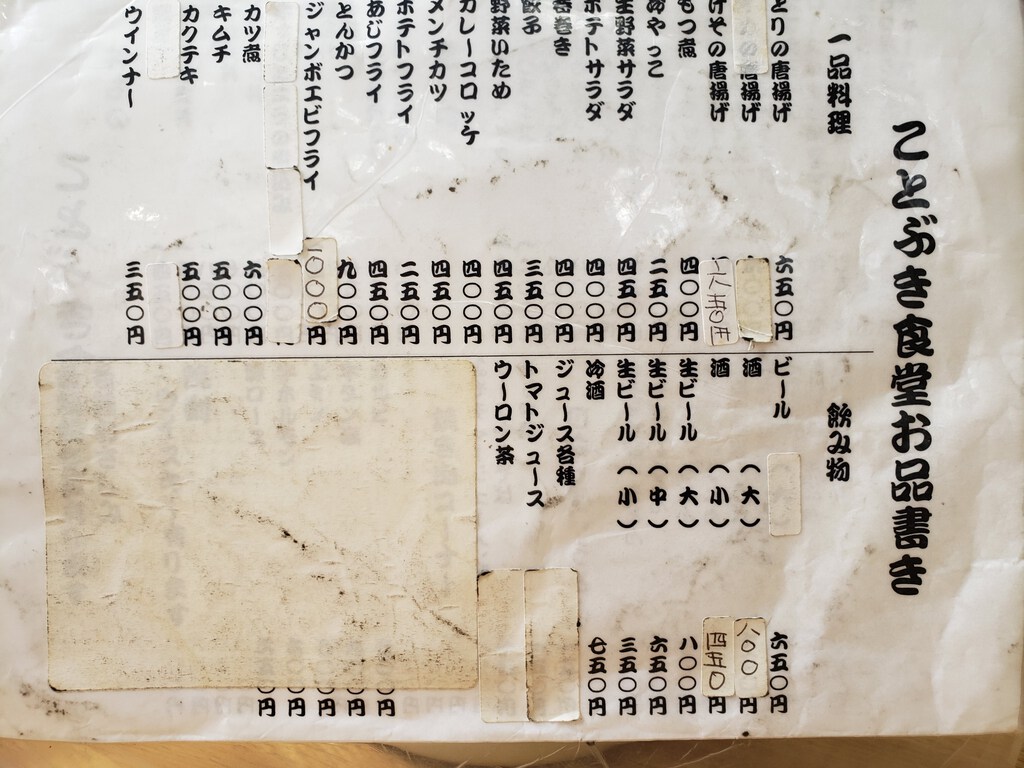 ことぶき食堂お品書き
一品料理
とりの唐揚げ 六五〇円
の唐揚げ
げその唐揚げ 八五〇円
もつ煮 四〇〇円
冷やっこ 二五〇円
生野菜サラダ 四五〇円
ポテトサラダ 四〇〇円
春巻き 四〇〇円
餃子 三五〇円
野菜いため 四五〇円
カレーコロッケ 四〇〇円
メンチカツ 四五〇円
ポテトフライ 二五〇円
あじフライ 四五〇円
とんかつ 九〇〇円
ジャンボエビフライ 一〇〇〇円
カツ煮 六〇〇円
キムチ 五〇〇円
カクテキ 五〇〇円
ウインナー 三五〇円
飲み物
ビール 六五〇円
酒（大） 八〇〇円
酒（小） 四五〇円
生ビール（大） 八〇〇円
生ビール（中） 六五〇円
生ビール（小） 三五〇円
冷酒 七五〇円
ジュース各種
トマトジュース
ウーロン茶